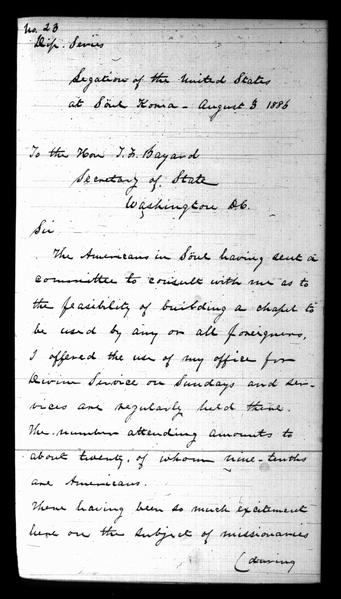 No. 23
Dip. Series
Legation of the United States
at Söul Korea - August 3 1886
To the Hon T. F. Bayard
Secretary of State
Washington D.C.
Sir
The Americans in Söul having sent a
committee to consult with me as to
the feasibility of building a chapel to
be used by any or all foreigners,
I offered the use of my office for
Divine Service on Sundays and ser-
vices are regularly held there.
The number attending amounts to
about twenty, of whom nine-tenths
are Americans.
There having been so much excitement
here on the subject of missionaries
(during